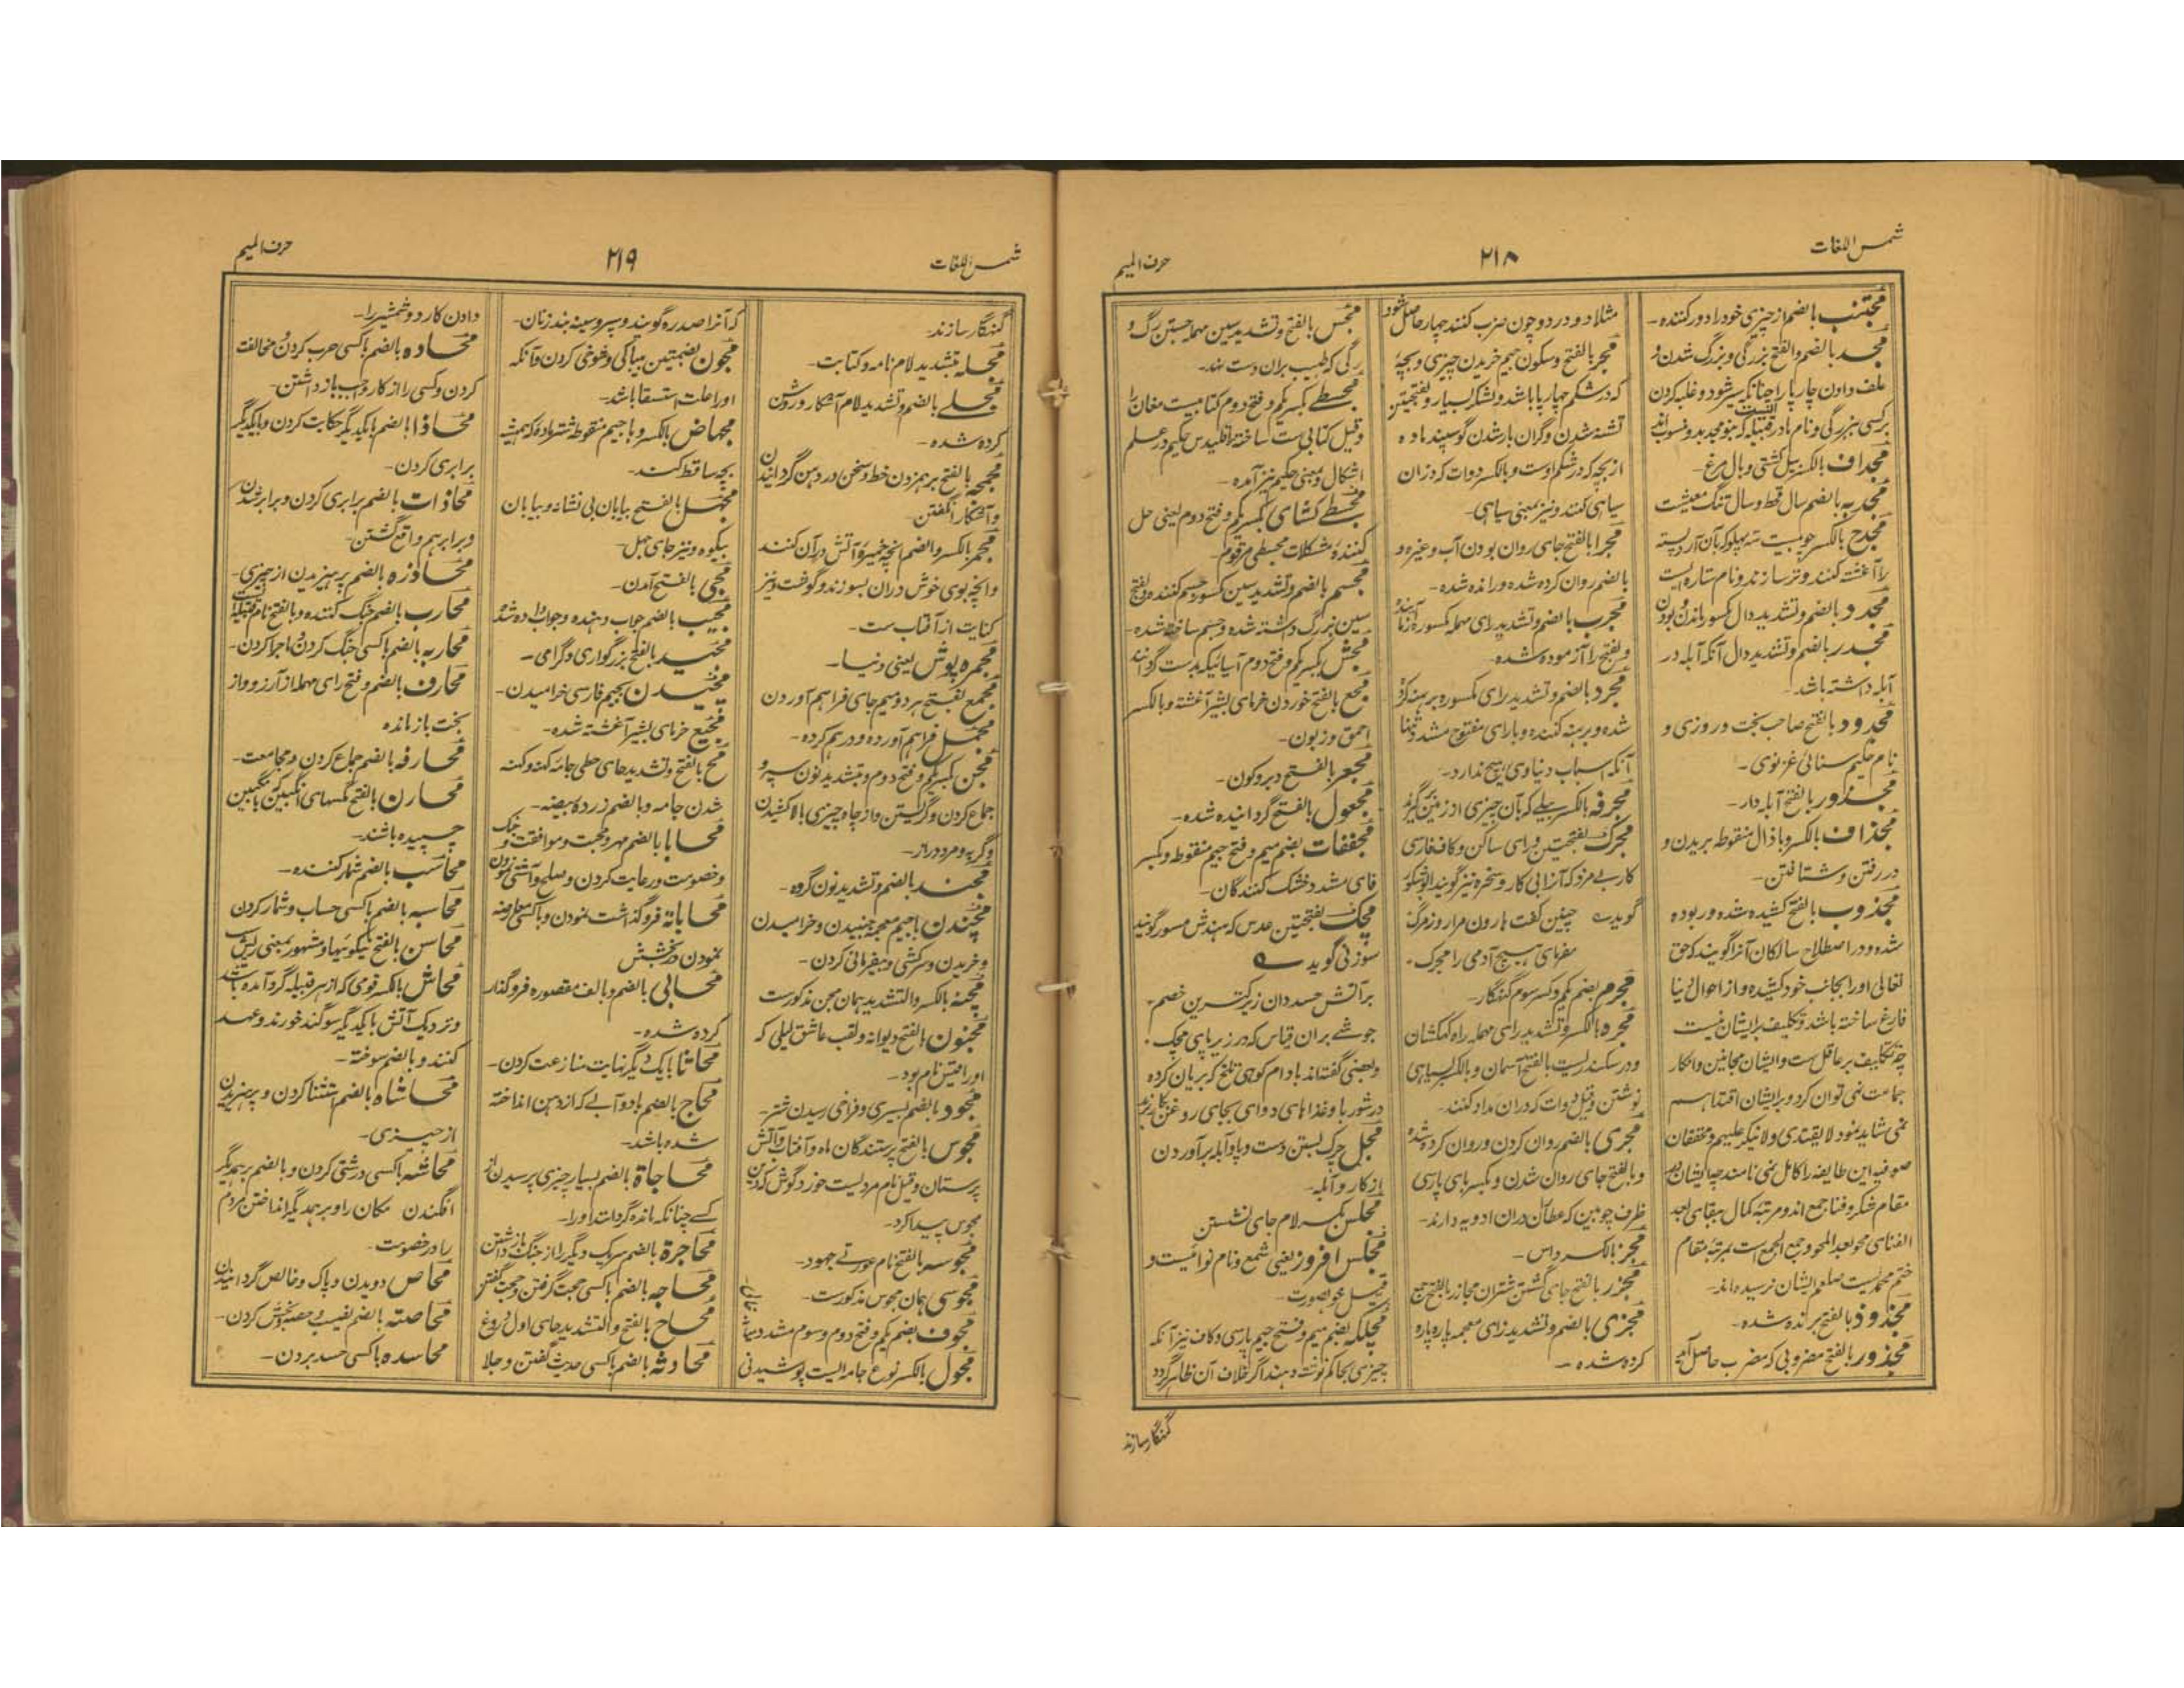 شمس اللغات
۲۱۸
حرف المیم
مجتنب بالضم از چیزی خود را دور کننده -
مجد بالضم والفتح بزرگی و بزرگ شدن و
علف دادن چارپا را چنانکه سیر شود و غلبه کردن
مجداف بالکسر بیل کشتی و بال مرغ -
مجدبه بالضم سال قحط و سال تنگ معیشت
را آغشته کنند و تر سازند و نام ستاره ایست
مجدد بالضم و تشدید دال مکسور
مجدر بالضم و تشدید دال آنکه آبله در
آبله داشته باشد -
مجدود بالفتح صاحب بخت و روزی و
نام حکیم سنائی غزنوی -
مجدور بالفتح آبله دار -
مجذاف بالکسر و با ذال منقوطه بریدن و
در رفتن و شتافتن -
مجذوب بالفتح کشیده شده و ربوده
شده و در اصطلاح سالکان آنرا گویند که حق
تعالی او را بجانب خود کشیده و از احوال دنیا
فارغ ساخته باشد و تکلیف بر ایشان نیست
چه تکلیف بر عاقل ست و ایشان مجانین و انکار
جماعت نمی توان کرد و بر ایشان اقتدا هم
نمی شاید نمود لا یقتدی ولا ینکر علیهم و محققان
صوفیه این طایفه را کامل نمی نامند چه ایشان در
مقام شکر و فنا جمع اند و مرتبه کمال بقای بعد
الفناى محو بعد المحو و جمع الجمع است بمرتبه مقام
ختم محمدیست صلعم ایشان نرسیده اند -
مجذوذ بالفتح برکنده شده -
مجذور بالفتح مضروبی که مضرب حاصل آید
مثلا دو در دو چون ضرب کنند چهار حاصل شود
مجر بالفتح و سکون جیم خریدن چیزی و بچه
که در شکم چهارپا باشد و لشکر بسیار و بفتحتین
تشنه شدن و گران بار شدن گوسپند ماده
از بچه که در شکم اوست و بالکسر دوات که در آن
سیاهی کنند و نیز بمعنی سیاهی -
مجرا بالفتح جای روان بودن آب و غیره و
بالضم روان کرده شده و رانده شده -
مجرب بالضم و تشدید رای مهمله مکسوره آزماینده
و بفتح را آزموده شده -
مجرد بالضم و تشدید رای مکسوره برهنه کرد
شده و برهنه کننده و با رای مفتوح مشدد تنها
آنکه اسباب دنیاوی هیچ ندارد -
مجرفه بالکسر بیلے که بآن چیزی از زمین برگیرند
مجرک بفتحتین و رای ساکن و کاف فارسی
کار بے مزد که آنرا بی کار و سخره نیز گویند ابو شکور
گوید ؎ چنین گفت هارون مرا روز مرگ
مفرمای هیچ آدمی را مجرک
مجرم بضم یکم و کسر سوم گنهگار -
مجره بالکسر و تشدید رای مهمله راه کهکشان
و در سکندریست بالفتح آسمان و بالکسر سیاهی
نوشتن و قیل دوات که در آن مداد کنند -
مجری بالضم روان کردن و روان کرده شده
و بالفتح جای روان شدن و بکسر بای پارسی
ظرف چوبین که عطاران در آن ادویه دارند -
مجز بالکسر داس -
مجزر بالفتح جای کشتن شتران مجازر بالفتح جمع
مجزی بالضم و تشدید زای معجمه پاره پاره
کرده شده -
مجس بالفتح و تشدید سین مهمله جستن رگ و
رگی که طبیب بران دست نهد -
مجسطے بکسر یکم و فتح دوم کتابیست مغان را
و قیل کتابی ست ساخته اقلیدس حکیم در علم
اشکال و بمعنی حکیم نیز آمده -
مجسطے کشای بکسر یکم و فتح دوم یعنی حل
کننده مشکلات مجسطی مرقوم -
مجسم بالضم و تشدید سین مکسور جسم کننده و بفتح
سین بزرگ داشته شده و جسم ساخته شده -
مجش بکسر یکم و فتح دوم آسیائیکه بدست گردانند
مجع بالفتح خوردن خرمای بشیر آغشته و بالکسر
احمق و زبون -
مجعر بالفتح دبر و کون -
مجعول بالفتح گردانیده شده -
مجففات بضم میم و فتح جیم منقوطه و بکسر
فای مشدد خشک کنندگان -
مجک بفتحتین عدس که هندش مسور گویند
سوزنی گوید ؎
بر آتش حسد دان زیر کترین خصم -
جوشے بران قیاس که در زیر پای مجک -
و بعضی گفته اند بادام کوهی تلخ که بریان کرده
در شوربا و غذاهای دوای بجای روغن بکار برند
مجل چرک بستن دست و پا و آبله برآوردن
از کار و آبله -
مجلس بکسر لام جای نشستن
مجلس افروز یعنی شمع و نام نوائیست و
مجلکه بضم میم و فتح جیم پارسی و کاف نیز آنکه
چیزی بحاکم نوشته دهند اگر خلاف آن ظاهر گردد
گنهگار سازند
شمس اللغات
۲۱۹
حرف المیم
گنهگار سازند -
مجله بتشدید لام نامه و کتابت -
مجلے بالضم و تشدید لام آشکار و روشن
کرده شده -
مجمجه بالفتح برهم زدن خط و سخن در دهن گردانیدن
و آشکارا نگفتن -
مجمر بالکسر والضم آنچه خمیره آتش در آن کنند
و آنچه بوی خوش دران بسوزند و گوخت و نیز
کنایت از آفتاب ست -
مجمره پوش یعنی دنیا -
مجمع بفتح هر دو میم جای فراهم آوردن
مجمل فراهم آورده و درهم کرده -
مجن بکسر یکم و فتح دوم و بتشدید نون سپر و
جماع کردن و گریستن و از چاه چیزی بالا کشیدن
و گریه و مرد دراز -
مجند بالضم و تشدید نون گروه -
مجندن باجیم معجمه جنبیدن و خرامیدن
و خریدن و سرکشی و بیفرمانی کردن -
مجنه بالکسر والتشدید همان مجن مذکورست
مجنون بالفتح دیوانه و لقب عاشق لیلی که
او را قیس نام بود -
مجود بالضم بسیری و فراخی رسیدن شتر -
مجوس بالفتح پرستندگان ماه و آفتاب و آتش
پرستان و قیل نام مردیست خورد گوش که دین
مجوس پیدا کرد -
مجوسه بالفتح نام عورتے جهود -
مجوسی همان مجوس مذکورست -
مجوف بضم یکم و فتح دوم و سوم مشدد میان خالی
مجول بالکسر نوع جامه ایست پوشیدنی
که آنرا صدره گویند و سپر و سینه بند زنان -
مجون بضمتین بیباکی و شوخی کردن و آنکه
او را علت استسقا باشد -
مجهاض بالکسر و با جیم منقوطه شتر ماده که همیشه
بچه ساقط کند -
مجهل بالفتح بیابان بی نشانه و بیابان
بیکوه و نیز جای جهل -
مجی بالفتح آمدن -
مجیب بالضم جواب دهنده و جواب داده شده
مجید بالفتح بزرگواری و گرامی -
مجیدن بجیم فارسی خرامیدن -
مجیع خرمای بشیر آغشته شده -
مح بالفتح و تشدید حای حطی جامه کهنه و کهنه
شدن جامه و بالضم زرده بیضه -
محابا بالضم مهر و محبت و موافقت و جنگ
و خصومت و رعایت کردن و صلح و آشتی نمودن
محاباة فروگذاشت نمودن و باکسی معاوضه
نمودن در بخشش
محابی بالضم و بالف مقصوره فروگذار
کرده شده -
محاثا بایک دیگر نهایت منازعت کردن -
محاج بالضم بادو آبے که از دهن انداخته
شده باشد -
محاجاة بالضم بسیار چیزی پرسیدن از
کسے چنانکه مانده گرداند او را -
محاجرة بالضم هر یک دیگر را از جنگ بازداشتن
محاجه بالضم باکسی حجت گرفتن و حجت گفتن
محاح بالفتح والتشدید حای اول دروغ
محادثه بالضم باکسی حدیث گفتن و جلا
دادن کارد و شمشیر را -
محاده بالضم باکسی حرب کردن و مخالفت
کردن و کسی را از کار واجب باز داشتن -
محاذا بالضم بایکدیگر حکایت کردن و بایکدیگر
برابری کردن -
محاذات بالضم برابری کردن و برابر شدن
و برابر هم واقع گشتن -
محاذره بالضم پرهیزیدن از چیزی -
محارب بالضم جنگ کننده و بالفتح نام قبیله است
محاربه بالضم باکسی جنگ کردن و ماجرا کردن -
محارف بالضم و فتح رای مهمله از آرزو و از
بخت بازمانده
محارفه بالضم جماع کردن و مجامعت -
محارن بالفتح مگسهای انگبین که با انگبین
چسپیده باشند -
محاسب بالضم شمار کننده -
محاسبه بالضم باکسی حساب و شمار کردن
محاسن بالفتح نیکوئیها و مشهور بمعنی ریش
محاش بالکسر قومی که از هر قبیله گرد آمده باشند
و نزدیک آتش بایکدیگر سوگند خورند و عهد
کنند و بالضم سوخته -
محاشاه بالضم استثنا کردن و پرهیزیدن
از چیزی -
محاشه باکسی درشتی کردن و بالضم بر همدیگر
افگندن مکان راو بر همدیگر انداختن مردم
را در خصومت -
محاص دویدن و پاک و خالص گردانیدن
محاصته بالضم نصیب و حصه بخش کردن -
محاسده باکسی حسد بردن -